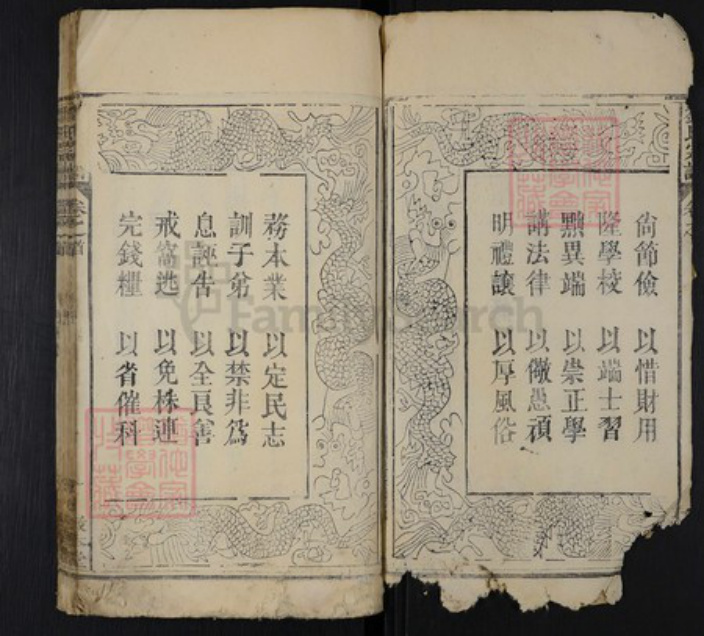 尙節儉 以惜財用
隆學校 以端士習
黜異端 以崇正學
講法律 以儆愚頑
明禮讓 以厚風俗
務本業 以定民志
訓子弟 以禁非爲
息誣告 以全良善
戒窩逃 以免株連
完錢糧 以省催科
FamilySearch